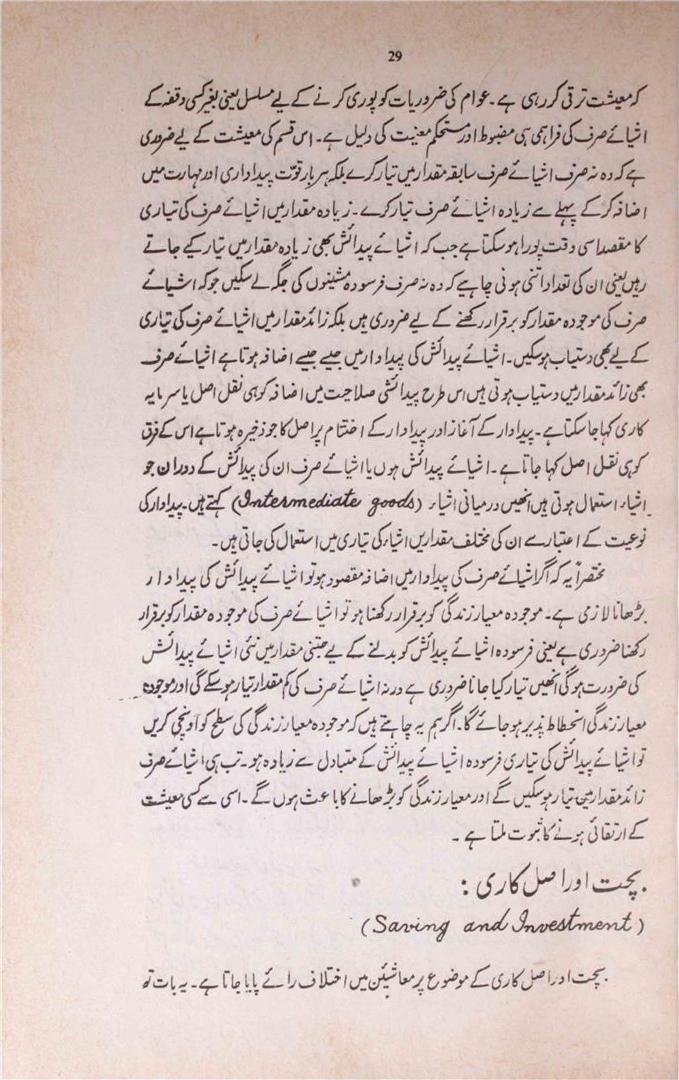 29
کہ معیشت ترقی کر رہی ہے۔ عوام کی ضروریات کو پوری کرنے کے لیے مسلسل یعنی بغیر کسی وقفہ کے
اشیائے صرف کی فراہمی ہی مضبوط اور مستحکم معیشت کی دلیل ہے۔ اس قسم کی معیشت کے لیے ضروری
ہے کہ وہ نہ صرف اشیائے صرف سابقہ مقدار میں تیار کرے بلکہ ہر بار قوت پیداواری اور مہارت میں
اضافہ کر کے پہلے سے زیادہ اشیائے صرف تیار کرے۔ زیادہ مقدار میں اشیائے صرف کی تیاری
کا مقصد اسی وقت پورا ہو سکتا ہے جب کہ اشیائے پیدائش بھی زیادہ مقدار میں تیار کیے جاتے
رہیں یعنی ان کی تعداد اتنی ہونی چاہیے کہ وہ نہ صرف فرسودہ مشینوں کی جگہ لے سکیں جو کہ اشیائے
صرف کی موجودہ مقدار کو برقرار رکھنے کے لیے ضروری ہیں بلکہ زائد مقدار میں اشیائے صرف کی تیاری
کے لیے بھی دستیاب ہو سکیں۔ اشیائے پیدائش کی پیداوار میں جیسے جیسے اضافہ ہوتا ہے اشیائے صرف
بھی زائد مقدار میں دستیاب ہوتی ہیں اس طرح پیدائشی صلاحیت میں اضافہ کو ہی نقل اصل یا سرمایہ
کاری کہا جا سکتا ہے۔ پیداوار کے آغاز اور پیداوار کے اختتام پر اصل کا جو ذخیرہ ہوتا ہے اس کے فرق
کو ہی نقل اصل کہا جاتا ہے۔ اشیائے پیدائش ہوں یا اشیائے صرف ان کی پیدائش کے دوران جو
اشیاء استعمال ہوتی ہیں انھیں درمیانی اشیاء (Intermediate goods) کہتے ہیں۔ پیداوار کی
نوعیت کے اعتبار سے ان کی مختلف مقداریں اشیاء کی تیاری میں استعمال کی جاتی ہیں۔
مختصراً یہ کہ اگر اشیائے صرف کی پیداوار میں اضافہ مقصود ہو تو اشیائے پیدائش کی پیداوار
بڑھانا لازمی ہے۔ موجودہ معیار زندگی کو برقرار رکھنا ہو تو اشیائے صرف کی موجودہ مقدار کو برقرار
رکھنا ضروری ہے یعنی فرسودہ اشیائے پیدائش کو بدلنے کے لیے جتنی مقدار میں نئی اشیائے پیدائش
کی ضرورت ہو گی انھیں تیار کیا جانا ضروری ہے ورنہ اشیائے صرف کی کم مقدار تیار ہو سکے گی اور موجودہ
معیار زندگی انحطاط پذیر ہو جائے گا۔ اگر ہم یہ چاہتے ہیں کہ موجودہ معیار زندگی کی سطح کو اونچی کریں
تو اشیائے پیدائش کی تیاری فرسودہ اشیائے پیدائش کے متبادل سے زیادہ ہو۔ تب ہی اشیائے صرف
زائد مقدار میں تیار ہو سکیں گے اور معیار زندگی کو بڑھانے کا باعث ہوں گے۔ اسی سے کسی معیشت
کے ارتقائی ہونے کا ثبوت ملتا ہے۔
بچت اور اصل کاری :
(Saving and Investment)
بچت اور اصل کاری کے موضوع پر معاشیئن میں اختلاف رائے پایا جاتا ہے۔ یہ بات تو